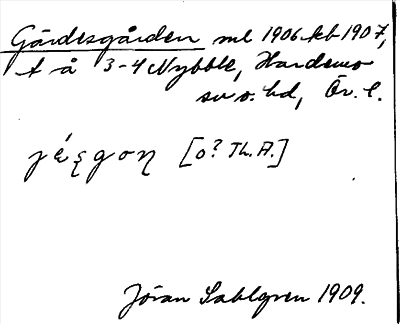 Gärdesgården ml 1906 kb 1907,
t å 3-4 Nybble, Hardemo
sn o. hd, Ör. l.
[o? Th. A.]
Jöran Sahlgren 1909.